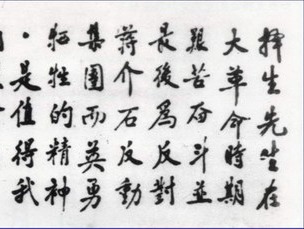 择生先生在
大革命時期
艰苦奋斗並
最後為反對
蒋介石反動
集團而英勇
牺牲的精神
，是值得我